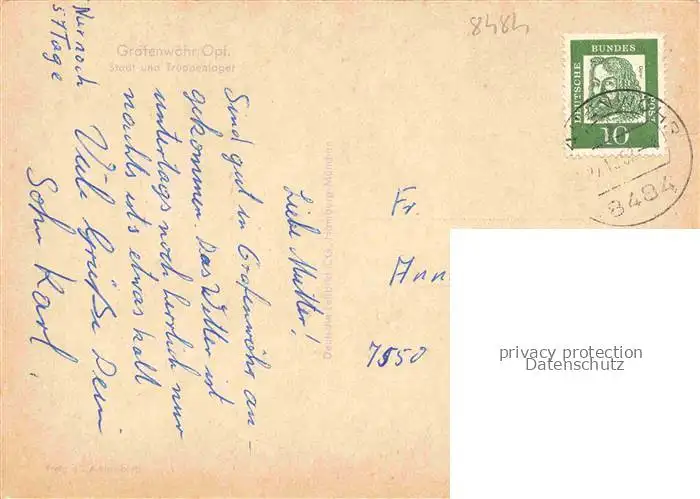 8484
Grafenwöhr Opf.
Stadt und Truppenlager
DEUTSCHE
BUNDES
POST
10
8484
Liebe Mutter!
Sind gut in Grafenwöhr an-
gekommen. Das Wetter ist
untertags noch herrlich nur
nachts ists etwas kalt
Viele Grüße Dein
Sohn Karl.
Nur noch
57 Tage
Fr.
Ann
7550
privacy protection
Datenschutz